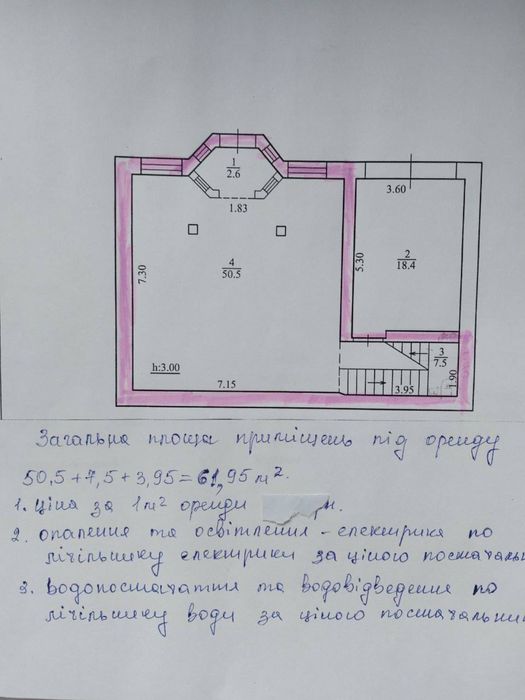 1
2.6
1.83
3.60
7.30
4
50.5
5.30
2
18.4
3
7.5
h:3.00
7.15
3.95
1.90
Загальна площа приміщень під оренду
50,5 + 7,5 + 3,95 = 61,95 м².
1. Ціна за 1 м² оренди
2. опалення та освітлення - електрика по
лічільнику електрики за ціною постачаль
3. водопостачання та водовідведення по
лічільнику води за ціною постачальни